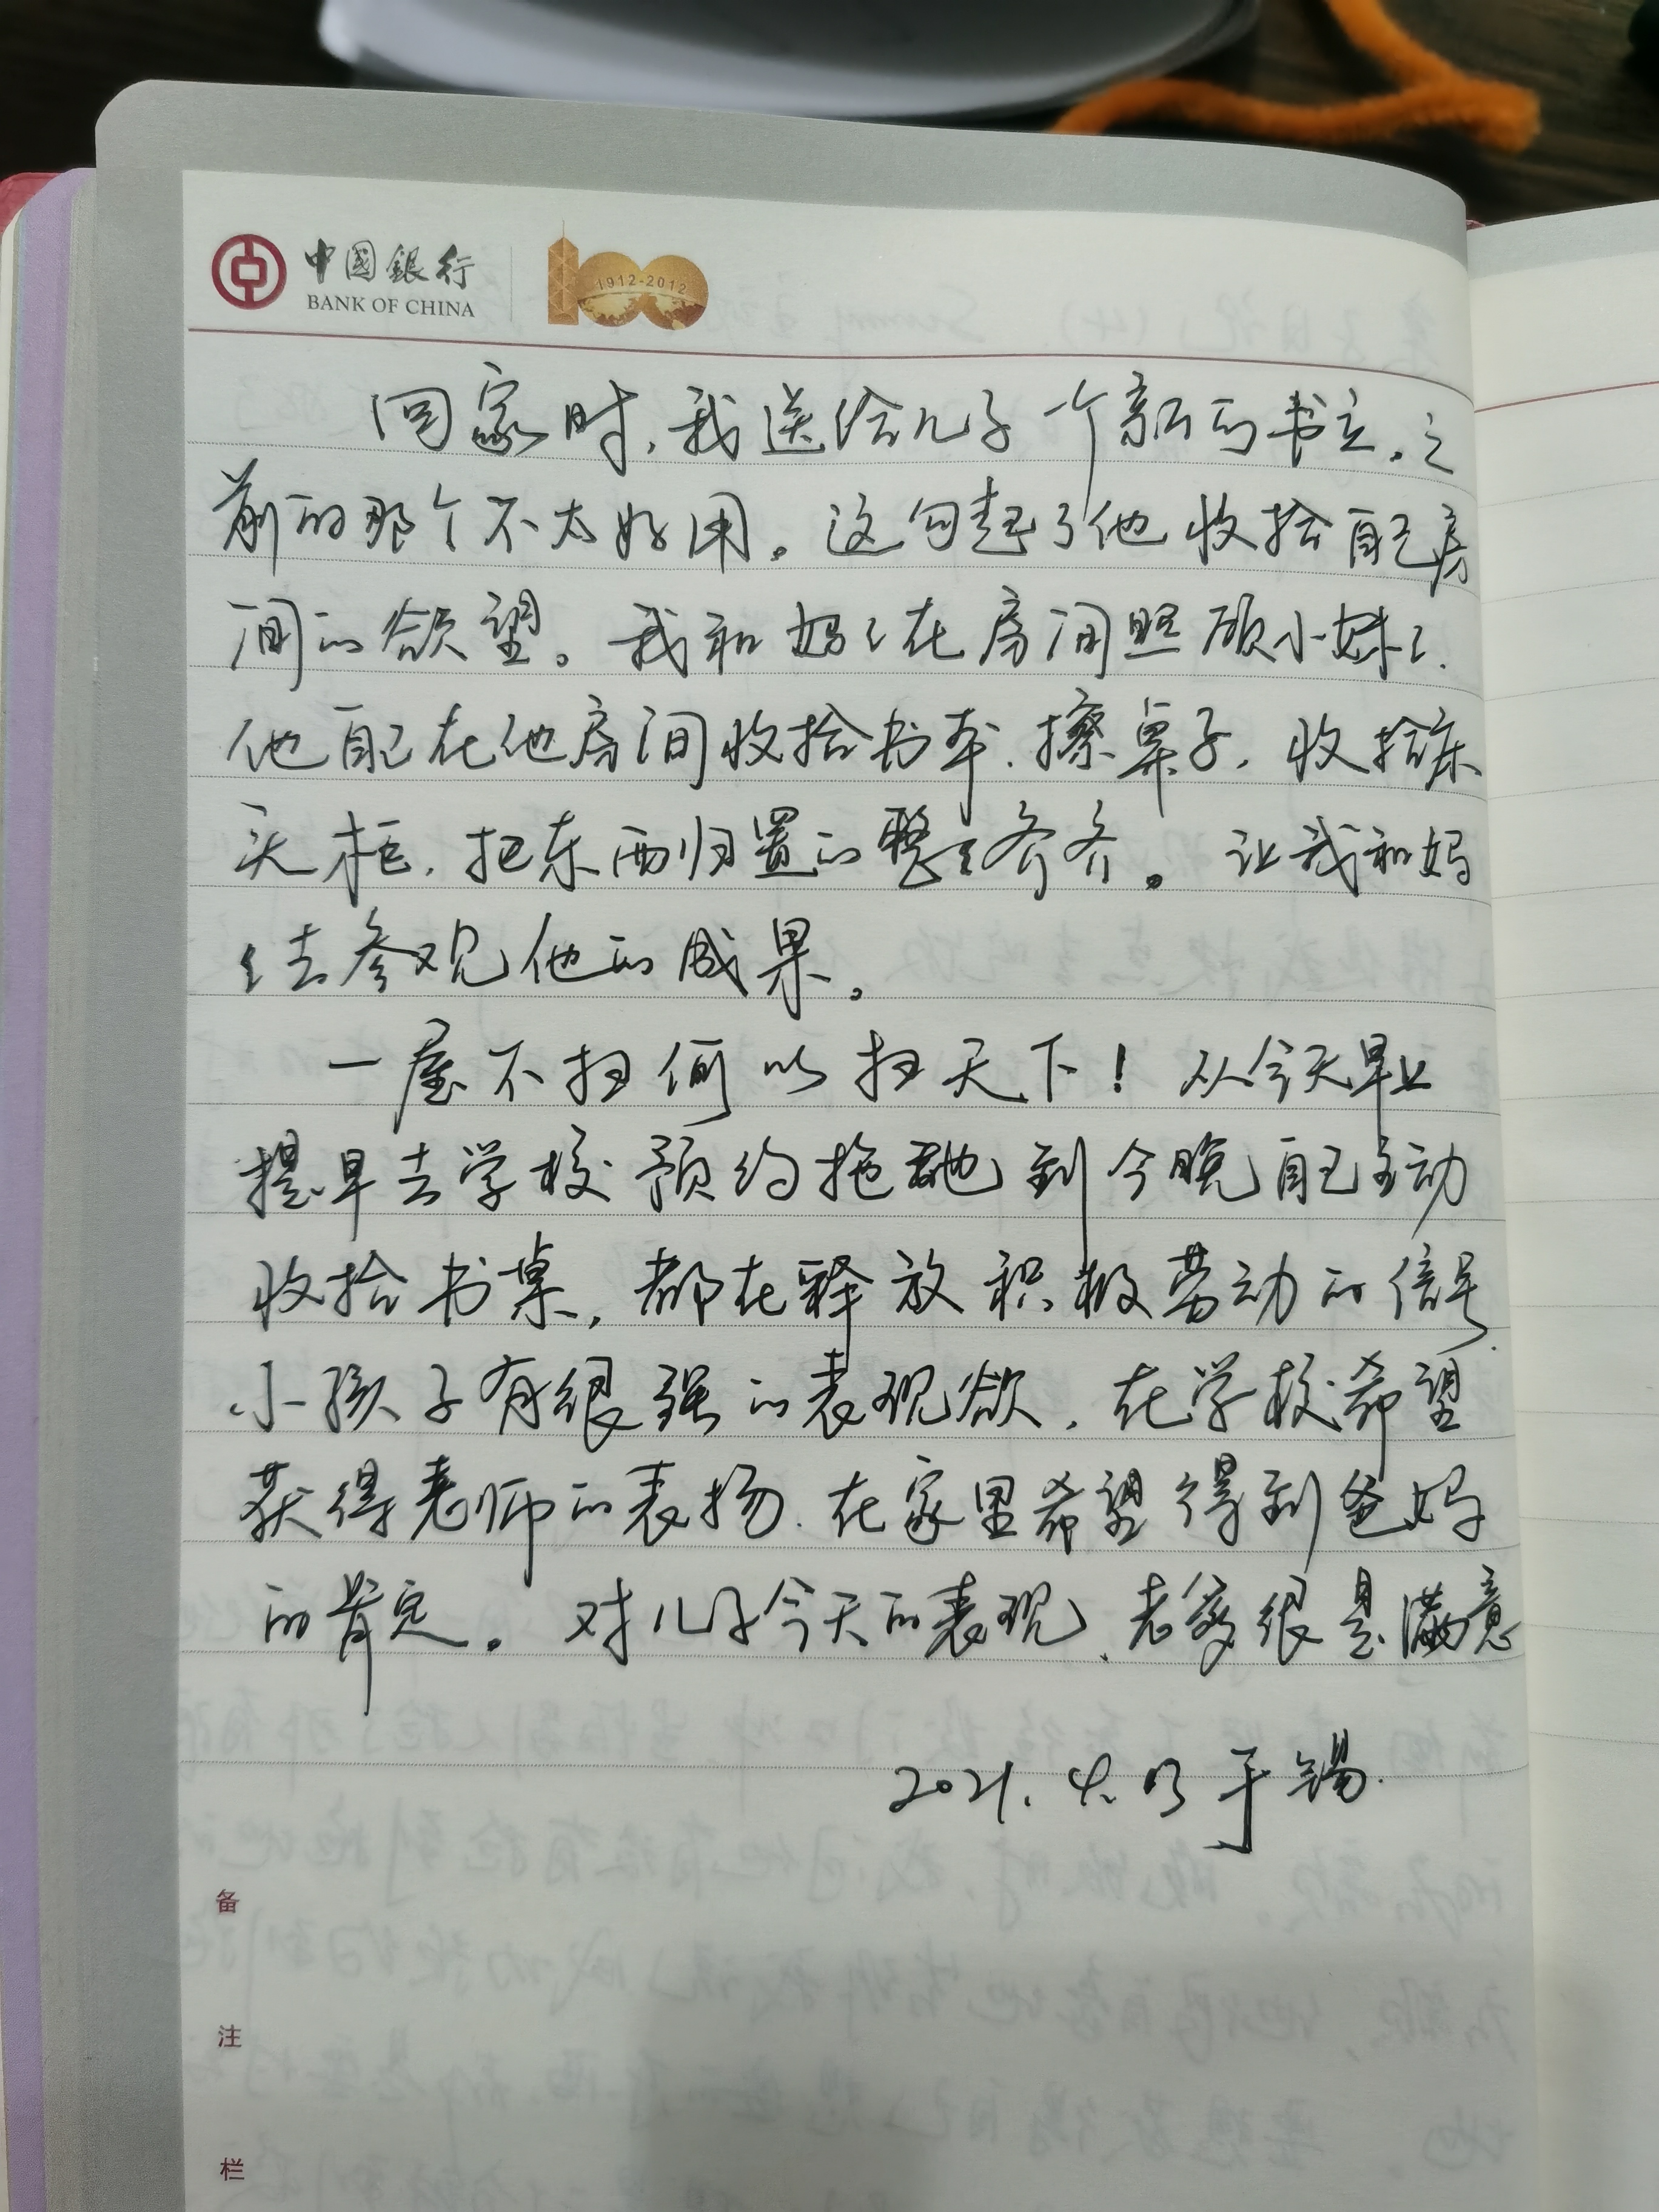 中國銀行
BANK OF CHINA
1912-2012
回家时,我送给儿子一个新的书立,之
前的那个不太好用。这勾起了他收拾自己房
间的欲望。我和妈妈在房间照顾小妹妹.
他自己在他房间收拾书本.擦桌子,收拾床
头柜,把东西归置的整整齐齐。让我和妈
妈去参观他的成果。
一屋不扫何以扫天下!从今天早上
提早去学校预约拖地到今晚自己主动
收拾书桌,都在释放积极劳动的信号.
小孩子有很强的表现欲,在学校希望
获得老师的表扬.在家里希望得到爸妈
的肯定。对儿子今天的表现,老爹很是满意
2021.4.
于锡.
备
注
栏